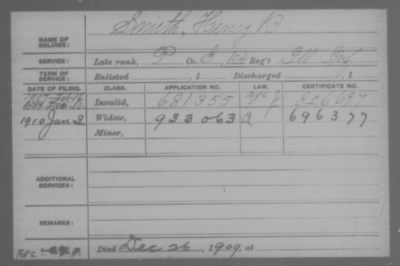 NAME OF SOLDIER: Smith, Henry B
SERVICE: Late rank, P Co. Reg't Ill Inf
TERM OF SERVICE: Enlisted , 1 Discharged , 1
DATE OF FILING. CLASS. APPLICATION NO. LAW. CERTIFICATE NO.
Invalid, 681355
1910 Jan 3 Widow, 933063 696377
Minor,
ADDITIONAL SERVICES:
REMARKS:
Died Dec 26, 1909, at